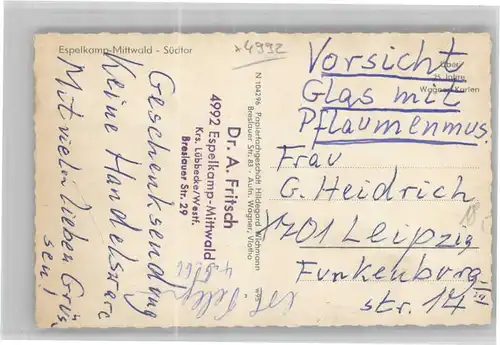 Espelkamp-Mittwald - Südtor
*4992
Geschenksendung
Keine Handelsware
Mit vielen lieben Grüs
sen!
Dr. A. Fritsch
4992 Espelkamp-Mittwald
Krs. Lübbecke/Westf.
Breslauer Str. 29
N 104296 Papierfachgeschäft Hildegard Wichmann
Breslauer Str. 83 - Aufn. Wagner, Vlotho
Über
25 Jahre
Wagner Karten
Vorsicht
Glas mit
Pflaumenmus.
Frau
G. Heidrich
701 Leipzig
Funkenburg-
str. 14